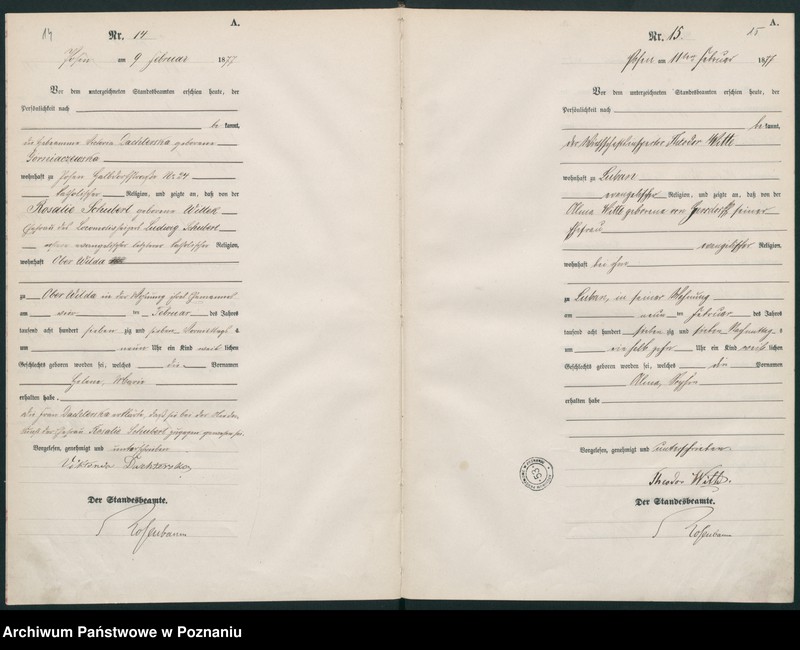 14
A.
Nr. 14
Posen am 9 Februar 1877
Vor dem unterzeichneten Standesbeamten erschien heute, der
Persönlichkeit nach
be kannt,
die Hebeamme Victoria geborene
Gorniaczewska
wohnhaft zu Posen Halbdorfstraße Nr. 24
katholischer Religion, und zeigte an, daß von der
Rosalie Schubert geborene Wittek
Ehefrau des Ludwig Schubert
evangelischer letztere katholischer Religion,
wohnhaft Ober Wilda
zu Ober Wilda in der Wohnung
am vier ten Februar des Jahres
tausend acht hundert sieben zig und sieben Vormittags
um neun Uhr ein Kind weib lichen
Geschlechts geboren worden sei, welches die Vornamen
Helene, Maria
erhalten habe.
Die Frau erklärte, daß sie bei der Nieder-
kunft der Ehefrau Rosalie Schubert zugegen gewesen sei.
Vorgelesen, genehmigt und unterschrieben
Der Standesbeamte.
Rosenbaum
A.
15
Nr. 15.
Posen am 11ten Februar 1877
Vor dem unterzeichneten Standesbeamten erschien heute, der
Persönlichkeit nach
be kannt,
der Wirthschaftsinspector Theodor Witte
wohnhaft zu Luban
evangelischer Religion, und zeigte an, daß von der
Alma Witte geborene von seiner
Ehefrau
evangelischer Religion,
wohnhaft bei ihm
zu Luban, in seiner Wohnung
am neun ten Februar des Jahres
tausend acht hundert sieben zig und sieben Vormittags
um einhalb zehn Uhr ein Kind weib lichen
Geschlechts geboren worden sei, welches die Vornamen
Alma, Sophie
erhalten habe
Vorgelesen, genehmigt und unterschrieben
Theodor Witte.
Der Standesbeamte.
Rosenbaum
53
Archiwum Państwowe w Poznaniu